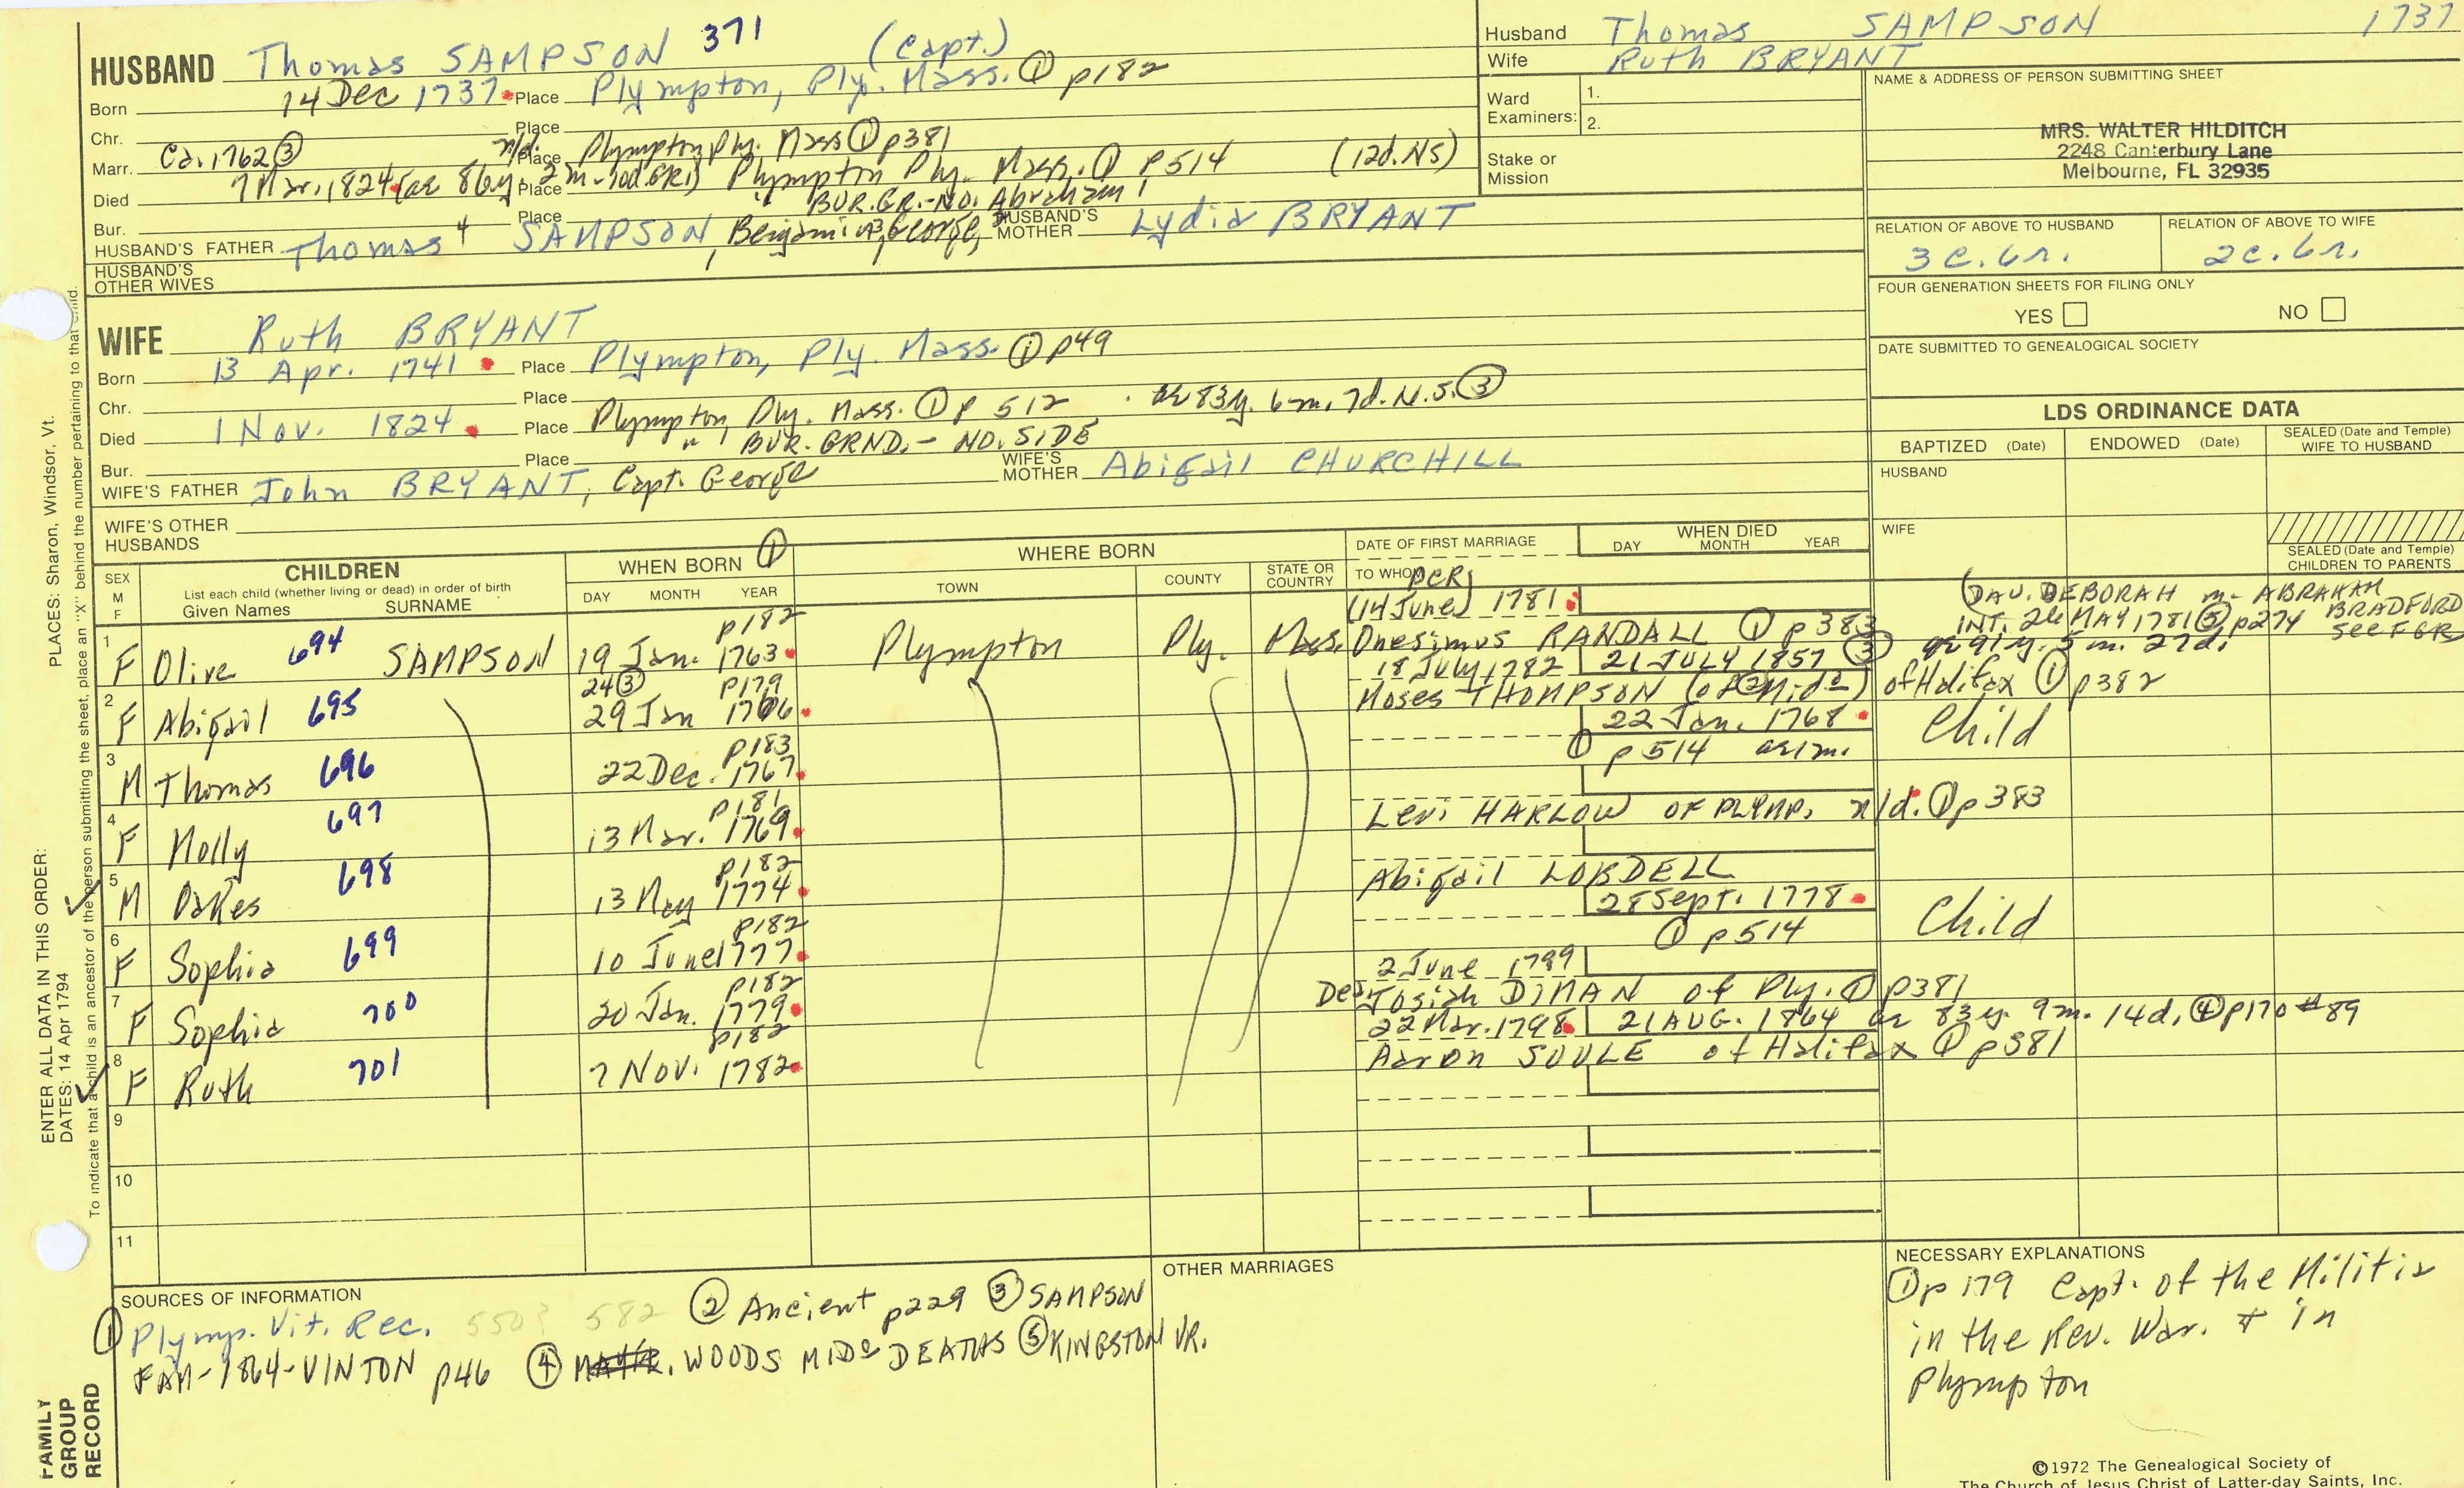 HUSBAND Thomas SAMPSON 371 (Capt.)
Born 14 Dec 1737 Place Plympton, Ply. Mass. ① p182
Chr. Place
Marr. Ca. 1762 ③ n/d. Place Plympton Ply. Mass ① p381
Died 7 Mar. 1824 (ae 86y. 2m-10d. GR1) Place Plympton Ply. Mass. ① p514 (12d. NS)
Bur. Place " BUR. GR.-NO. Abraham
HUSBAND'S FATHER Thomas 4 SAMPSON, Benjamin 3, George, HUSBAND'S MOTHER Lydia BRYANT
HUSBAND'S OTHER WIVES
Husband Thomas SAMPSON 1737
Wife Ruth BRYANT
Ward Examiners: 1.
2.
Stake or Mission
NAME & ADDRESS OF PERSON SUBMITTING SHEET
MRS. WALTER HILDITCH
2248 Canterbury Lane
Melbourne, FL 32935
RELATION OF ABOVE TO HUSBAND RELATION OF ABOVE TO WIFE
3c. 6r. 2c. 6r.
FOUR GENERATION SHEETS FOR FILING ONLY
YES NO
DATE SUBMITTED TO GENEALOGICAL SOCIETY
WIFE Ruth BRYANT
Born 13 Apr. 1741 Place Plympton, Ply. Mass. ① p49
Chr. Place
Died 1 Nov. 1824 Place Plympton, Ply. Mass. ① p 512 ae 83y. 6m. 7d. N.S. ③
Bur. Place " BUR. GRND. - NO. SIDE
WIFE'S FATHER John BRYANT, Capt. George WIFE'S MOTHER Abigail CHURCHILL
WIFE'S OTHER HUSBANDS
LDS ORDINANCE DATA
BAPTIZED (Date) ENDOWED (Date) SEALED (Date and Temple) WIFE TO HUSBAND
HUSBAND
WIFE
SEALED (Date and Temple) CHILDREN TO PARENTS
SEX M F CHILDREN List each child (whether living or dead) in order of birth Given Names SURNAME
WHEN BORN ① DAY MONTH YEAR
WHERE BORN TOWN COUNTY STATE OR COUNTRY
DATE OF FIRST MARRIAGE TO WHOM
WHEN DIED DAY MONTH YEAR
PCR
(14 June) 1781
(DAU. DEBORAH m- ABRAHAM BRADFORD
INT. 26 MAY 1781 ⑤ p274 see FGR
1 F Olive 694 SAMPSON 19 Jan. 1763 p182 Plympton Ply. Mass. Onesimus RANDALL ① p383
18 July 1782 21 JULY 1857 ③ ae 91 y. 5 m. 27d.
2 F Abigail 695 24 ③ 29 Jan 1766 p179 Moses THOMPSON (of Mid°) of Halifax ① p382
3 M Thomas 696 22 Dec. 1767 p183 22 Jan. 1768 ① p514 ae 1m. Child
4 F Molly 697 13 Mar. 1769 p181 Levi HARLOW OF PLYMP. n/d. ① p383
5 M Oakes 698 13 May 1774 p182 Abigail LOBDELL
6 F Sophia 699 10 June 1777 p182 28 Sept. 1778 ① p514 Child
2 June 1799
7 F Sophia 700 20 Jan. 1779 p182 Josiah DIMAN of Ply. ① p381
22 Mar. 1798 21 AUG. 1864 ae 83y. 9m. 14d. ④ p170 #89
8 F Ruth 701 7 Nov. 1782 p182 Aaron SOULE of Halifax ① p381
9
10
11
SOURCES OF INFORMATION
① Plymp. Vit. Rec. 582 ② Ancient p229 ③ SAMPSON
FAM-1864-VINTON p46 ④ WOODS MID° DEATHS ⑤ KINGSTON VR.
OTHER MARRIAGES
NECESSARY EXPLANATIONS
① p 179 Capt. of the Militia
in the Rev. War. + in
Plympton
©1972 The Genealogical Society of
The Church of Jesus Christ of Latter-day Saints, Inc.
FAMILY GROUP RECORD
ENTER ALL DATA IN THIS ORDER:
DATES: 14 Apr 1794
PLACES: Sharon, Windsor, Vt.
To indicate that a child is an ancestor of the person submitting the sheet, place an "X" behind the number pertaining to that child.